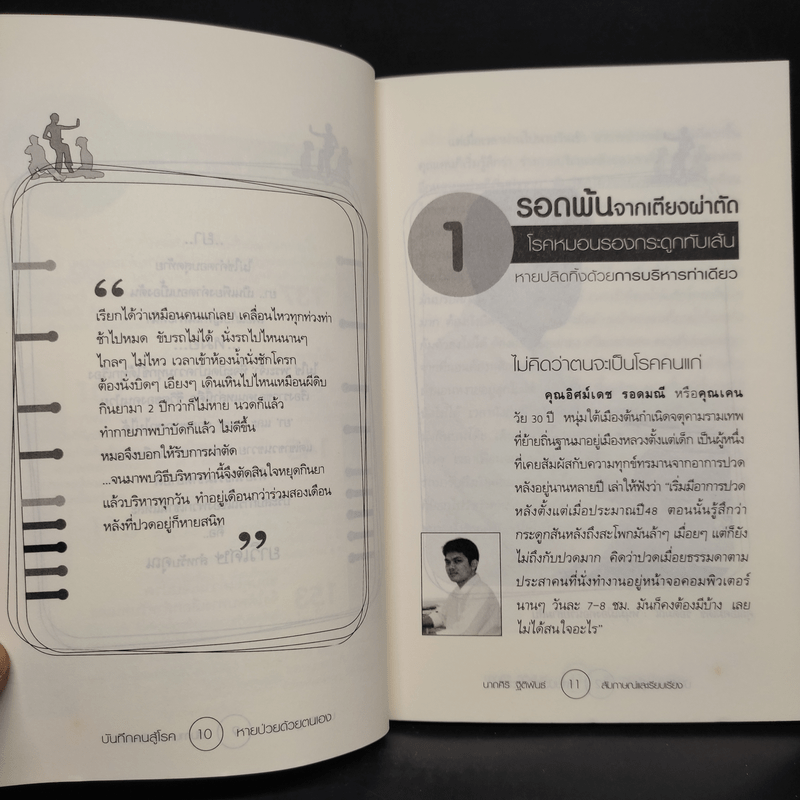 “
เรียกได้ว่าเหมือนคนแก่เลย เคลื่อนไหวทุกท่วงท่า
ช้าไปหมด ขับรถไม่ได้ นั่งรถไปไหนนานๆ
ไกลๆ ไม่ไหว เวลาเข้าห้องน้ำนั่งชักโครก
ต้องนั่งบิดๆ เอียงๆ เดินเหินไปไหนเหมือนผีดิบ
กินยามา 2 ปีกว่าก็ไม่หาย นวดก็แล้ว
ทำกายภาพบำบัดก็แล้ว ไม่ดีขึ้น
หมอจึงบอกให้รับการผ่าตัด
...จนมาพบวิธีบริหารท่านี้จึงตัดสินใจหยุดกินยา
แล้วบริหารทุกวัน ทำอยู่เดือนกว่าร่วมสองเดือน
หลังที่ปวดอยู่ก็หายสนิท
”
บันทึกคนสู้โรค 10 หายป่วยด้วยตนเอง
1
รอดพ้นจากเตียงผ่าตัด
โรคหมอนรองกระดูกทับเส้น
หายปลิดทิ้งด้วยการบริหารท่าเดียว
ไม่คิดว่าตนจะเป็นโรคคนแก่
คุณอิศม์เดช รอดมณี หรือคุณเคน
วัย 30 ปี หนุ่มใต้เมืองต้นกำเนิดจตุคามรามเทพ
ที่ย้ายถิ่นฐานมาอยู่เมืองหลวงตั้งแต่เด็ก เป็นผู้หนึ่ง
ที่เคยสัมผัสกับความทุกข์ทรมานจากอาการปวด
หลังอยู่นานหลายปี เล่าให้ฟังว่า "เริ่มมีอาการปวด
หลังตั้งแต่เมื่อประมาณปี48 ตอนนั้นรู้สึกว่า
กระดูกสันหลังถึงสะโพกมันล้าๆ เมื่อยๆ แต่ก็ยัง
ไม่ถึงกับปวดมาก คิดว่าปวดเมื่อยธรรมดาตาม
ประสาคนที่นั่งทำงานอยู่หน้าจอคอมพิวเตอร์
นานๆ วันละ 7-8 ชม. มันก็คงต้องมีบ้าง เลย
ไม่ได้สนใจอะไร"
นาถศิริ ฐิติพันธ์ 11 สัมภาษณ์และเรียบเรียง